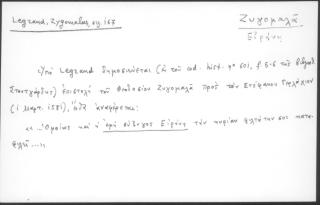 Legrand, Zygomalas, σχ. 167
Ζυγομαλᾶ
Εἰρήνη
Legrand δημοσιεύεται (ἐκ τοῦ cod. hist. 4º 601, f. 5-6 τῆς
Στουτγάρδης) ἐπιστολή τοῦ Θεοδοσίου Ζυγομαλᾶ πρός τόν Στέφανον Γερλάχιον
(1 μαρτ. 1581), ἀναφέρεται:
«...Ὁμοίως καί ἡ ἐμή σύζυγος Εἰρήνη τήν κυρίαν φιλτάτην σου κατα-
φιλεῖ...»